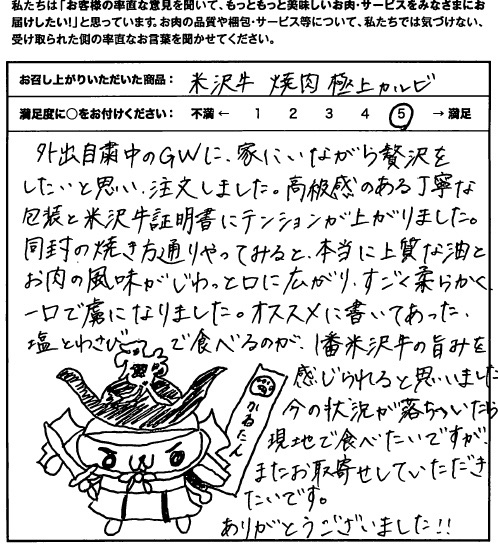 私たちは「お客様の率直な意見を聞いて、もっともっと美味しいお肉・サービスをみなさまにお
届けしたい!」と思っています。お肉の品質や梱包・サービス等について、私たちでは気づけない、
受け取られた側の率直なお言葉を聞かせてください。
お召し上がりいただいた商品: 米沢牛 焼肉 極上カルビ
満足度に○をお付けください: 不満← 1 2 3 4 5 →満足
外出自粛中のGWに、家にいながら贅沢を
したいと思い、注文しました。高級感のある丁寧な
包装と米沢牛証明書にテンションが上がりました。
同封の焼き方通りやってみると、本当に上質な油と
お肉の風味がじわっと口に広がり、すごく柔らかく、
一口で虜になりました。オススメに書いてあった、
塩とわさびで食べるのが、1番米沢牛の旨みを
感じられると思いました
今の状況が落ちついたら
現地で食べたいですが、
またお取寄せしていただき
たいです。
ありがとうございました!!
かねたん